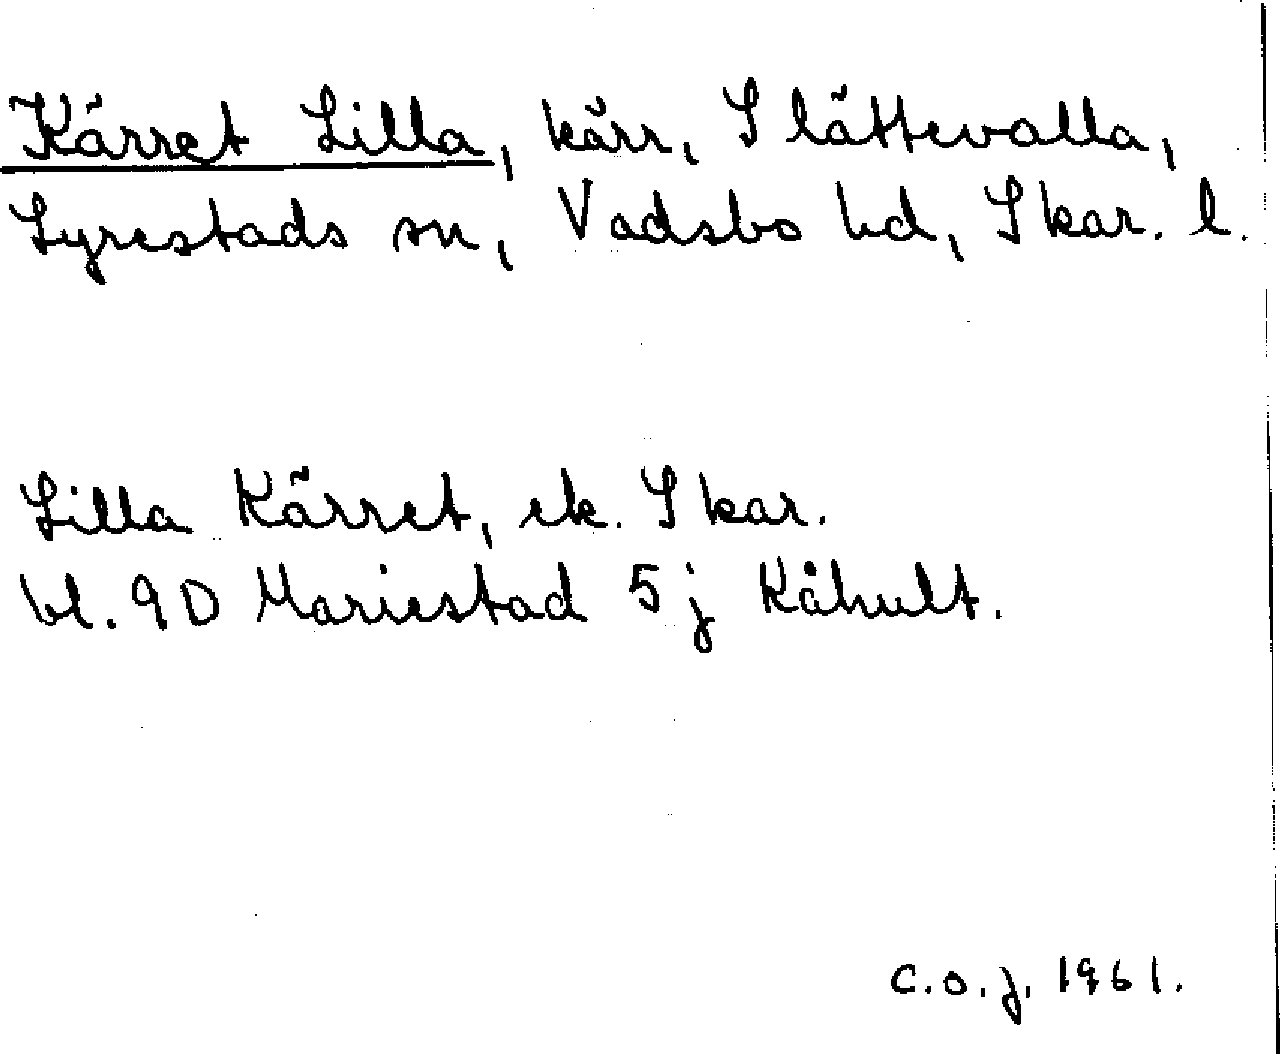 Kärret Lilla, kärr, Slättevalla,
Lyrestads sn, Vadsbo hd, Skar. l.
Lilla Kärret, ek. Skar.
bl. 9D Mariestad 5j Kåhult.
C.O.J. 1961.